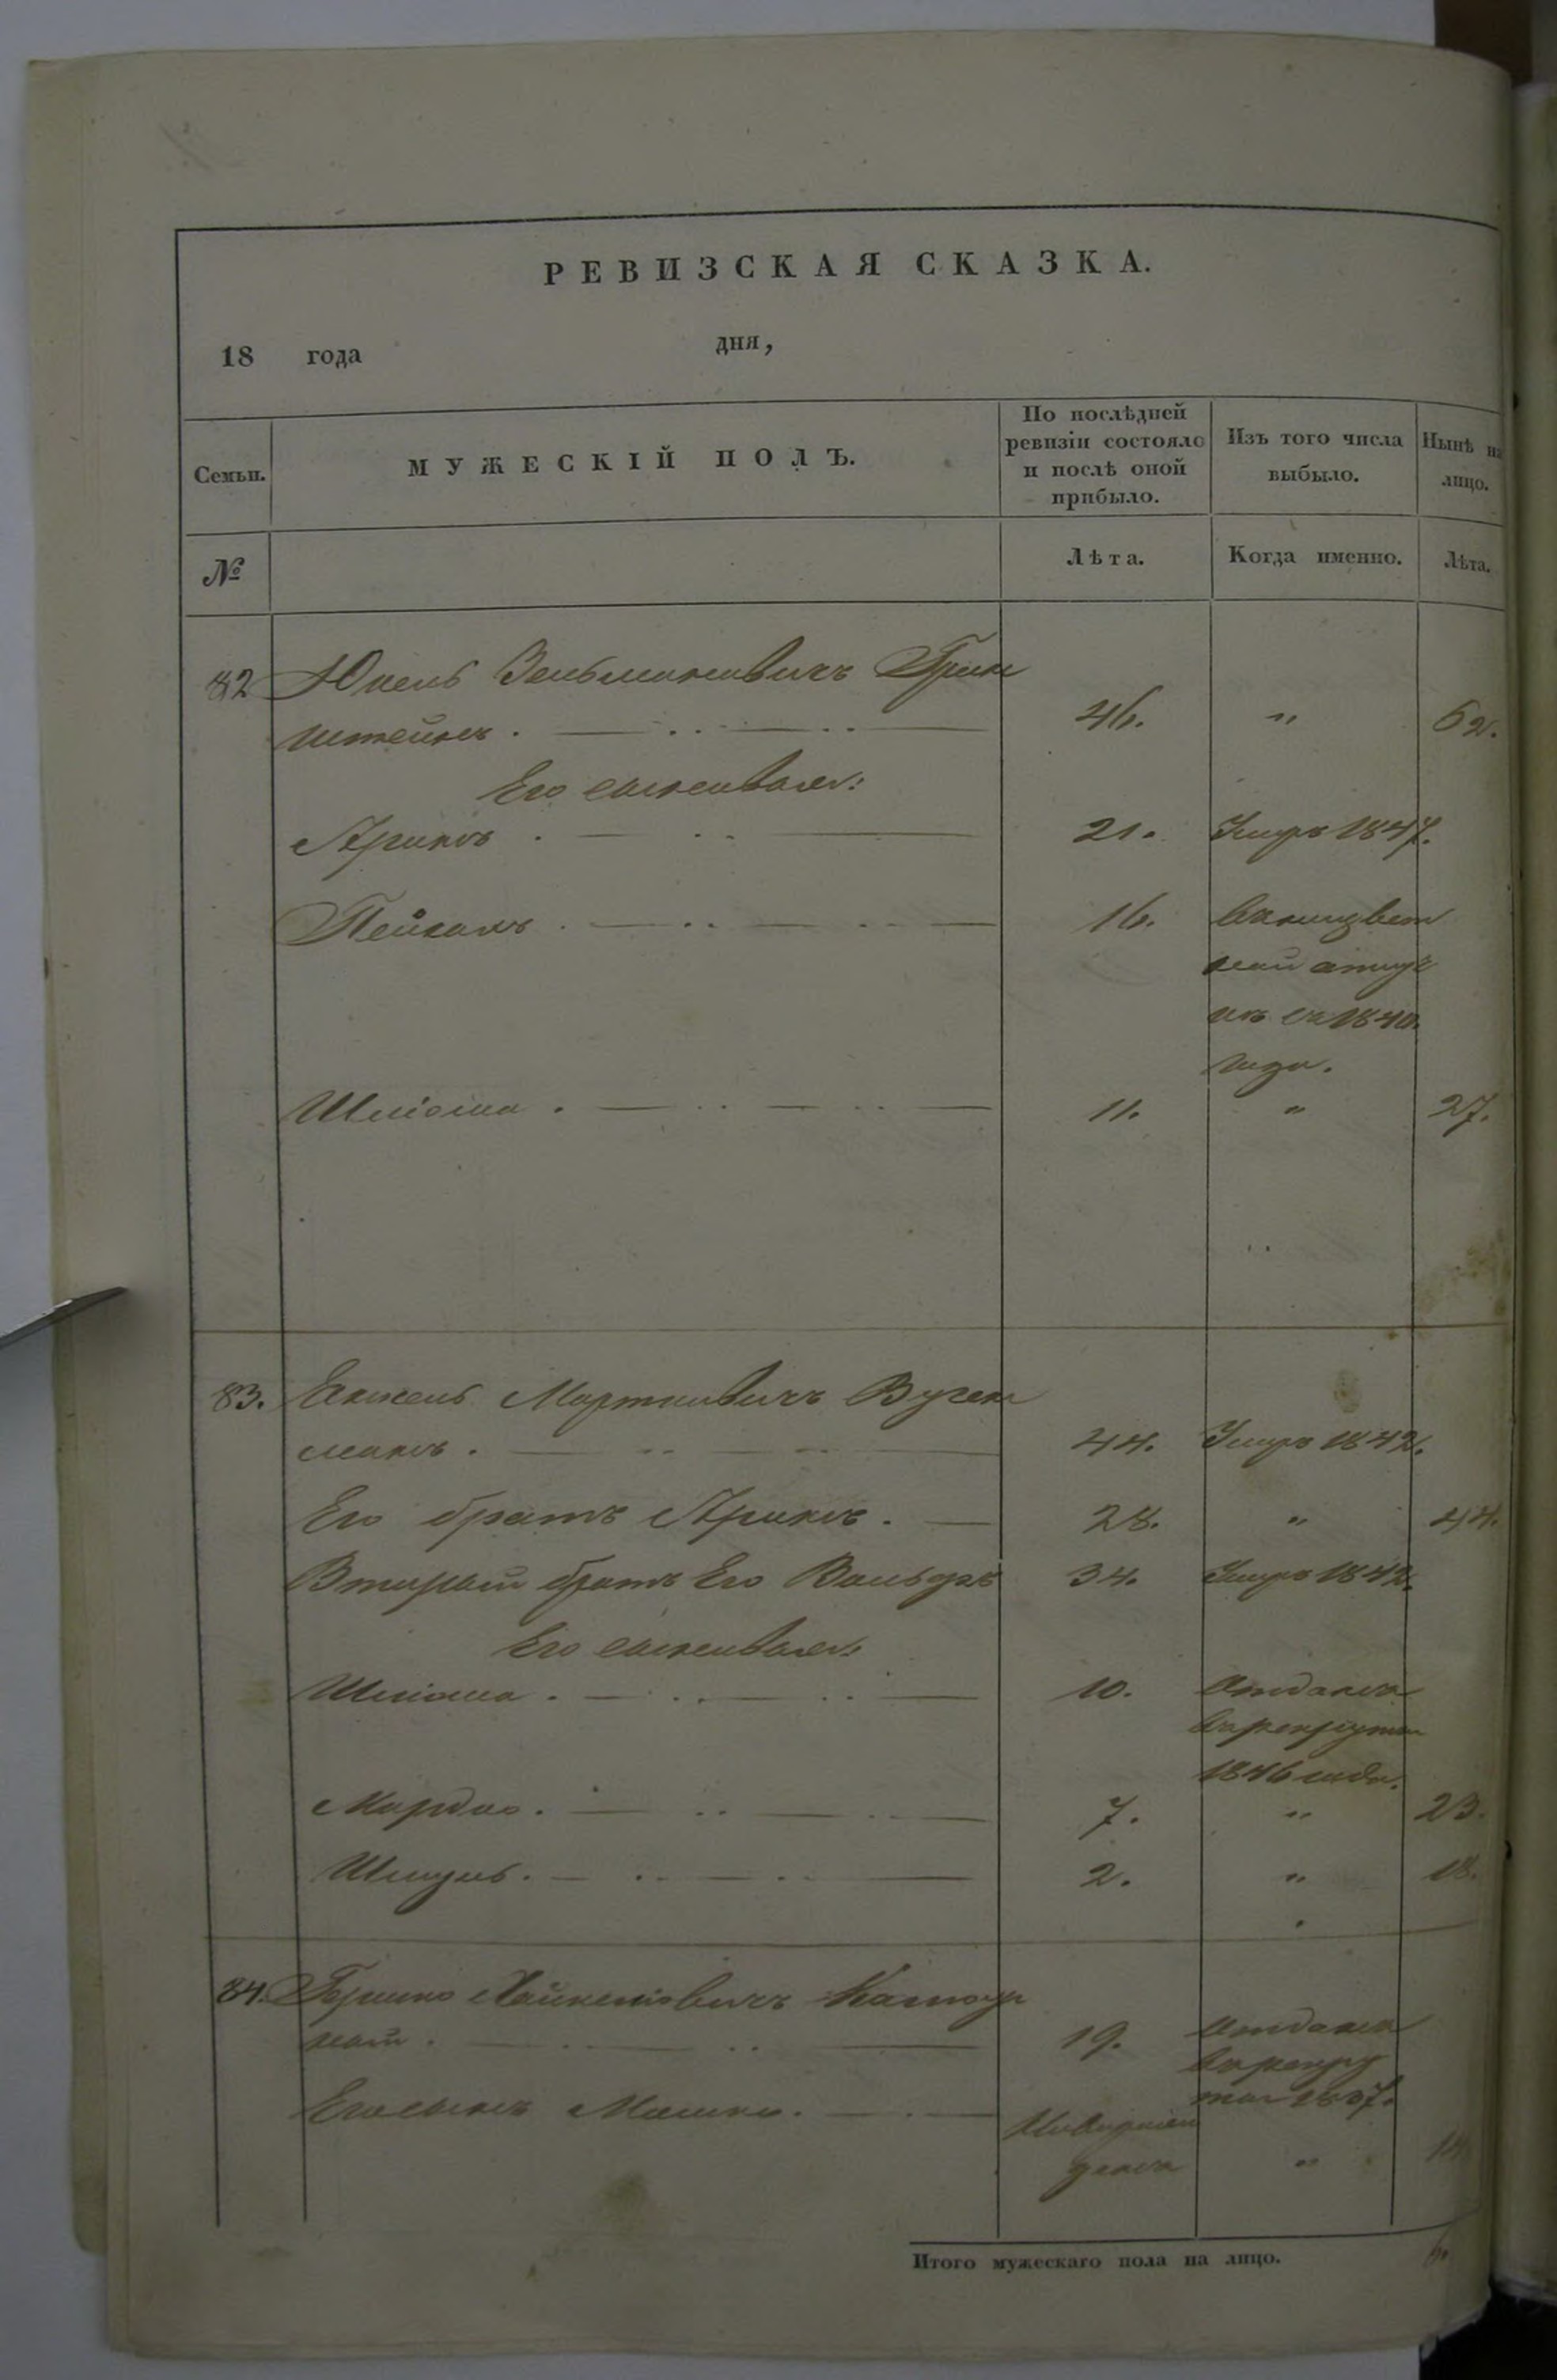 РЕВИЗСКАЯ СКАЗКА.
18 года дня,
Семьи. МУЖЕСКІЙ ПОЛЪ. По послѣдней ревизіи состояло и послѣ оной прибыло. Изъ того числа выбыло. Нынѣ на лицо.
№ Лѣта. Когда именно. Лѣта.
82 Юкель Зельмановичъ Грин
штейнъ. 46. " 62.
Его сыновья:
Арикъ 21. Умеръ 1847.
16.
1840
года.
Шліома. 11. " 27.
83. Мортковичъ Вуген
манъ. 44. Умеръ 1842.
Его братъ Арикъ. 28. " 44.
Вторый братъ Его Вольфъ 34. Умеръ 1842.
Его сыновья:
Шліома. 10. Отданъ
въ рекруты
1846 года.
Мордко. 7. " 23.
Шмуль. 2. " 18.
84.
ный. 19. Отданъ
въ рекру
ты 1837.
Его сынъ Мошко. Новорож
денъ "
Итого мужескаго пола на лицо. 6.